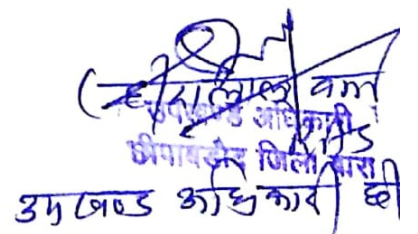 (हीरालाल वर्मा
उपखण्ड अधिकारी
छीपाबड़ौद जिला बारां
उपखण्ड अधिकारी छी